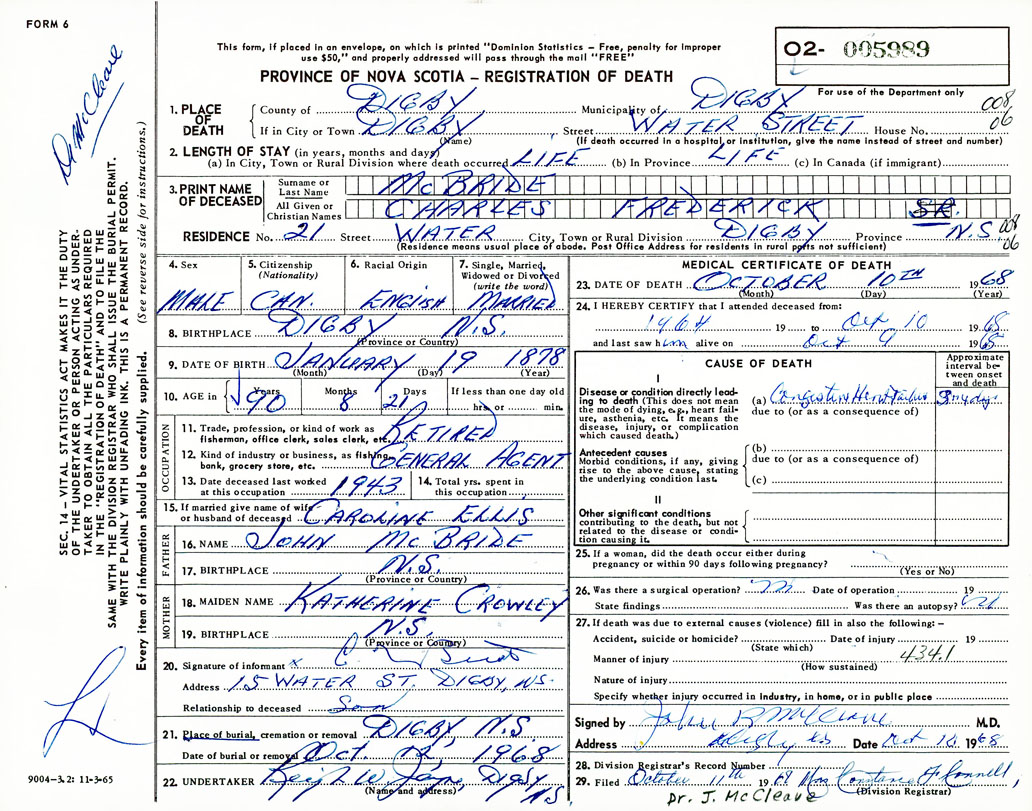 FORM 6
This form, if placed in an envelope, on which is printed "Dominion Statistics – Free, penalty for improper
use $50," and properly addressed will pass through the mail "FREE"
PROVINCE OF NOVA SCOTIA – REGISTRATION OF DEATH
02- 005989
For use of the Department only
1. PLACE OF DEATH
County of DIGBY Municipality of DIGBY 008
If in City or Town DIGBY, Street WATER STREET House No. 06
(Name) (If death occurred in a hospital or institution, give the name instead of street and number)
2. LENGTH OF STAY (in years, months and days)
(a) In City, Town or Rural Division where death occurred LIFE (b) In Province LIFE (c) In Canada (if immigrant)
3. PRINT NAME OF DECEASED
Surname or Last Name McBRIDE
All Given or Christian Names CHARLES FREDERICK SR.
RESIDENCE No. 21 Street WATER City, Town or Rural Division DIGBY Province N.S. 008 06
(Residence means usual place of abode. Post Office Address for residents in rural parts not sufficient)
4. Sex MALE
5. Citizenship (Nationality) CAN.
6. Racial Origin ENGLISH
7. Single, Married, Widowed or Divorced (write the word) MARRIED
8. BIRTHPLACE DIGBY N.S.
(Province or Country)
9. DATE OF BIRTH JANUARY 19 1878
(Month) (Day) (Year)
10. AGE in Years 90 Months 8 Days 21 If less than one day old hrs. or min.
OCCUPATION
11. Trade, profession, or kind of work as
fisherman, office clerk, sales clerk, etc. RETIRED
12. Kind of industry or business, as fishing,
bank, grocery store, etc. GENERAL AGENT
13. Date deceased last worked at this occupation 1943
14. Total yrs. spent in this occupation
15. If married give name of wife
or husband of deceased CAROLINE ELLIS
FATHER
16. NAME JOHN McBRIDE
17. BIRTHPLACE N.S.
(Province or Country)
MOTHER
18. MAIDEN NAME KATHERINE CROWLEY
19. BIRTHPLACE N.S.
(Province or Country)
20. Signature of informant x
Address 15 WATER ST. DIGBY, NS.
Relationship to deceased Son
21. Place of burial, cremation or removal DIGBY, N.S.
Date of burial or removal Oct. 12, 1968
22. UNDERTAKER Digby N.S.
(Name and address)
MEDICAL CERTIFICATE OF DEATH
23. DATE OF DEATH OCTOBER 10TH 1968
(Month) (Day) (Year)
24. I HEREBY CERTIFY that I attended deceased from:
1964 19 to Oct 10 1968
and last saw him alive on Oct 9 1968
CAUSE OF DEATH
Approximate interval between onset and death
I
Disease or condition directly leading to death (This does not mean the mode of dying, e.g., heart failure, asthenia, etc. It means the disease, injury, or complication which caused death.)
(a) Congestive Heart Failure 3
due to (or as a consequence of)
Antecedent causes
Morbid conditions, if any, giving rise to the above cause, stating the underlying condition last.
(b)
due to (or as a consequence of)
(c)
II
Other significant conditions contributing to the death, but not related to the disease or condition causing it.
25. If a woman, did the death occur either during
pregnancy or within 90 days following pregnancy?
(Yes or No)
26. Was there a surgical operation? no Date of operation 19
State findings Was there an autopsy? no
27. If death was due to external causes (violence) fill in also the following: –
Accident, suicide or homicide? Date of injury 19
(State which)
Manner of injury 434.1
(How sustained)
Nature of injury
Specify whether injury occurred in Industry, in home, or in public place
Signed by John R McCleave M.D.
Address Digby NS Date Oct 1968
28. Division Registrar's Record Number
29. Filed October 11th 1968 Mrs Constance O'Connell,
(Division Registrar)
Dr. J. McCleave
Dr McCleave
SEC. 14 – VITAL STATISTICS ACT MAKES IT THE DUTY
OF THE UNDERTAKER OR PERSON ACTING AS UNDER-
TAKER TO OBTAIN ALL THE PARTICULARS REQUIRED
IN THE "REGISTRATION OF DEATH" AND TO FILE THE
SAME WITH THE DIVISION REGISTRAR WHO SHALL ISSUE THE BURIAL PERMIT.
WRITE PLAINLY WITH UNFADING INK. THIS IS A PERMANENT RECORD.
Every item of information should be carefully supplied. (See reverse side for instructions.)
9004-3.2: 11-3-65